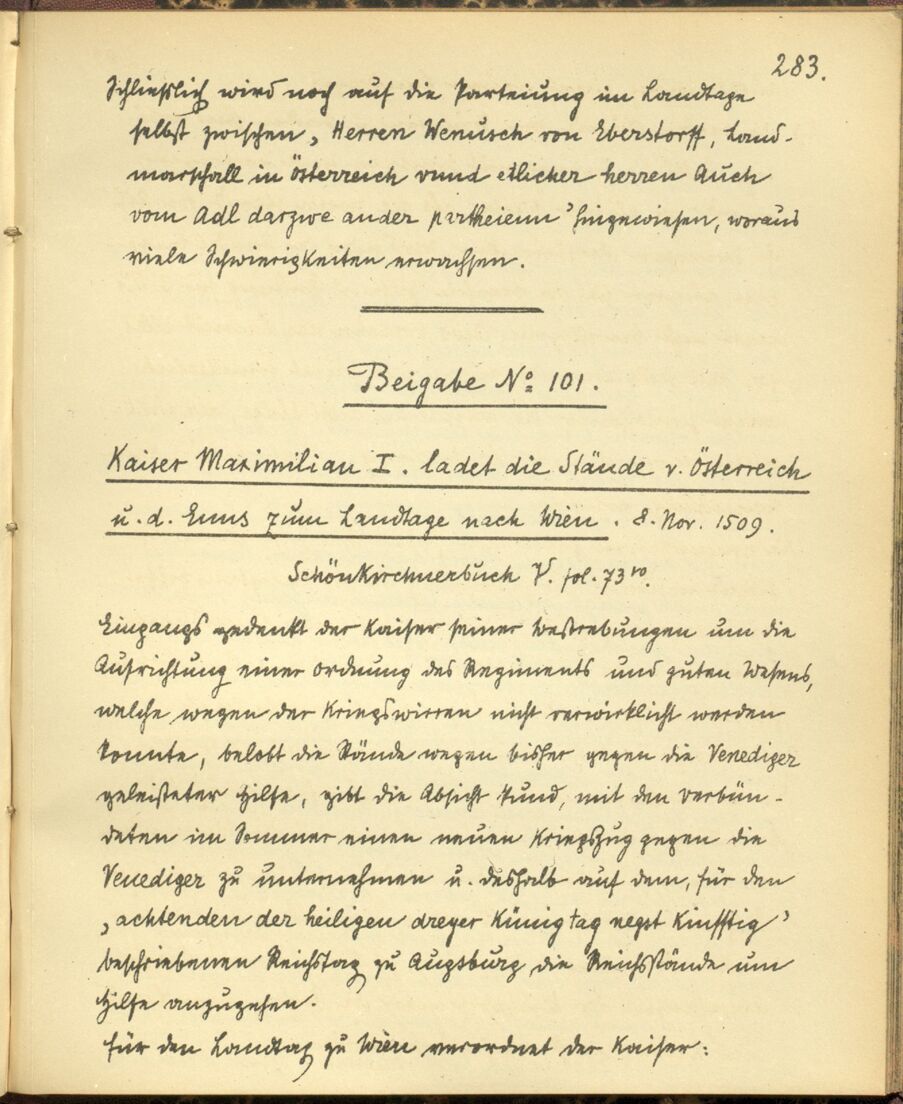 283.
Schließlich wird noch auf die Parteiung im Landtage
selbst zwischen „Herren Wenusch von Eberstorff, Land-
marschall in Österreich vnnd etlicher herren Auch
vom Adl darzwe ander partheienn‟ hingewiesen, woraus
viele Schwierigkeiten erwachsen.
Beigabe No 101.
Kaiser Maximilian I. ladet die Stände v. Österreich
u. d. Enns zum Landtage nach Wien. 8. Nov. 1509.
Schönkirchnerbuch V. fol. 73vo.
Eingangs gedenkt der Kaiser seiner Bestrebungen um die
Aufrichtung einer Ordnung des Regiments und guten Wesens,
welche wegen der Kriegswirren nicht verwirklicht werden
konnte, belobt die Stände wegen bisher gegen die Venediger
geleisteter Hilfe, gibt die Absicht kund, mit den Verbün-
deten im Sommer einen neuen Kriegszug gegen die
Venediger zu unternehmen u. deshalb auf dem, für den
„achtenden der heiligen dreyer Künig tag negst Kinfftig‟
beschriebenen Reichstag zu Augsburg die Reichsstände um
Hilfe anzugehen.
Für den Landtag zu Wien verordnet der Kaiser: